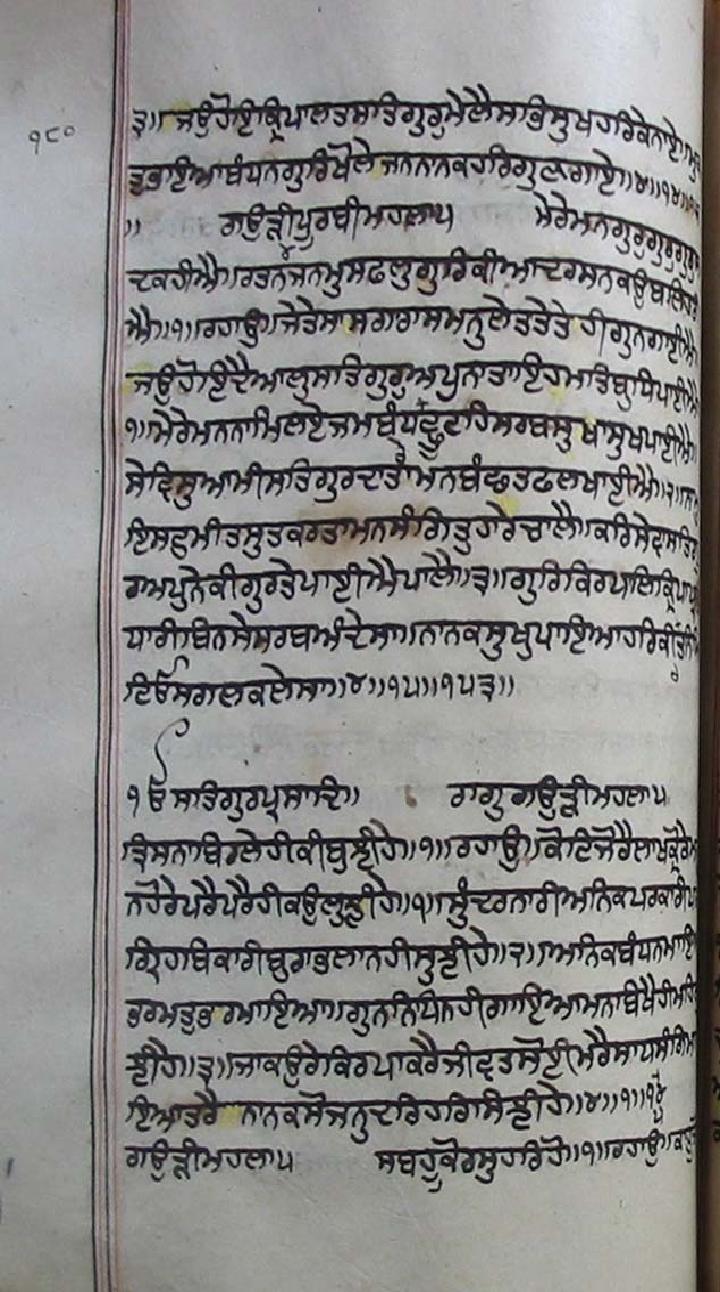 ੧੮੦
੩॥ ਜਉਹੋਇਕ੍ਰਿਪਾਲਤਸਤਿਗੁਰੁਮੇਲੈਸਭਿਸੁਖਹਰਿਕੇਨਾਏ॥ਮੁ
ਤੁਭਾਇਆਬੰਧਨਗੁਰਿਖੋਲੇਜਨਨਾਨਕਹਰਿਗੁਣਗਾਏ॥੪॥੧੪॥੧੫੨
॥ ਗਉੜੀਪੂਰਬੀਮਹਲਾ੫ ਮੇਰੇਮਨਗੁਰੁਗੁਰੁਗੁਰੁ
ਦਕਹੀਐ॥ਰਤਨਜਨਮੁਸਫਲੁਗੁਰਿਕੀਆਦਰਸਨਕਉਬਲਿਹ
ਐ॥੧॥ਰਹਾਉ॥ਜੇਤੇਸਾਸਗਰਾਸਮਨੁਲੇਤਤੇਤੇਹੀਗੁਨਗਾਈਐ
ਜਉਹੋਇਦੈਆਲੁਸਤਿਗੁਰੁਅਪੁਨਾਤਾਇਹਮਤਿਬੁਧਿਪਾਈਐ
੧॥ਮੇਰੇਮਨਨਾਮਿਲਏਜਮਬੰਧਛੂਟਹਿਸਰਬਸੁਖਾਸੁਖਪਾਈਐ
ਸੇਵਿਸੁਆਮੀਸਤਿਗੁਰਦਾਤੈਮਨਬੰਛਤਫਲਪਾਈਐ॥੨॥ਨਾ
ਇਸਟੁਮੀਤਸੁਤਕਰਤਾਮਨਸੰਗਿਤੁਹਾਰੇਚਾਲੈ॥ਕਰਿਸੇਵਸਤਿ
ਰਅਪੁਨੇਕੀਗੁਰਤੇਪਾਈਐਪਾਲੈ॥੩॥ਗੁਰਿਕਿਰਪਾਲਿਕ੍ਰਿਪਾਪ੍ਰ
ਧਾਰੀਬਿਨਸੇਸਰਬਅੰਦੇਸਾ॥ਨਾਨਕਸੁਖੁਪਾਇਆਹਰਿਕੀਰਤਨਿਮਿ
ਟਿਓਸਗਲਕਲੇਸਾ॥੪॥੧੫॥੧੫੩॥
੧ੳ ਸਤਿਗੁਰਪ੍ਰਸਾਦਿ॥ ਰਾਗੁਗਉੜੀਮਹਲਾ੫
ਤ੍ਰਿਸਨਾਬਿਰਲੇਹੀਕੀਬੁਝੀਹੇ॥੧॥ਰਹਾਉ॥ਕੋਟਿਜੋਰੇਲਾਖਕ੍ਰੋਰੇਮ
ਨਹੋਰੇਪਰੈਪਰੈਹੀਕਉਲੁਝੀਹੇ॥੧॥ਸੁੰਦਰਨਾਰੀਅਨਿਕਪਰਕਾਰੀਪ
ਗ੍ਰਿਹਬਿਕਾਰੀਬੁਰਾਭਲਾਨਹੀਸੁਝੀਹੇ॥੨॥ਅਨਿਕਬੰਧਨਮਾਇ
ਭਰਮਤੁਭਰਮਾਇਆ॥ਗੁਨਨਿਧਿਨਹੀਗਾਇਆਮਨਬਿਖੈਹੀਮਹਿ
ਝੀਹੇ॥੩॥ਜਾਕਉਰੇਕਿਰਪਾਕਰੈਜੀਵਤਸੋਈਮਰੈਸਾਧਸੰਗਿਮਾ
ਇਆਤਰੈ ਨਾਨਕਸੋਜਨੁਦਰਿਹਰਿਸਿਝੀਹੇ॥੪॥੧॥੧੫੪
ਗਉੜੀਮਹਲਾ੫ ਸਬਹੂਕੋਰਸੁਹਰਿਹੋ॥੧॥ਰਹਾਉ॥ਕਾਹੂ